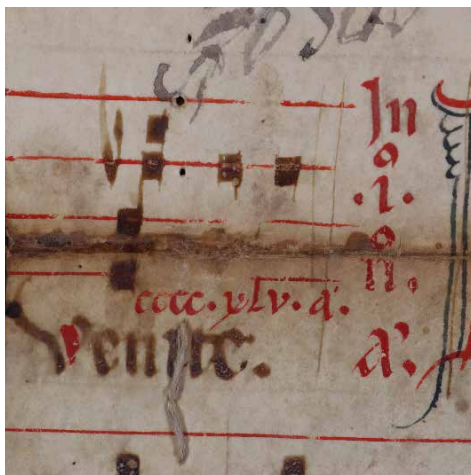 In
o
.i.
o
n.
cccc.xlv.a'.
Venite.
a'.